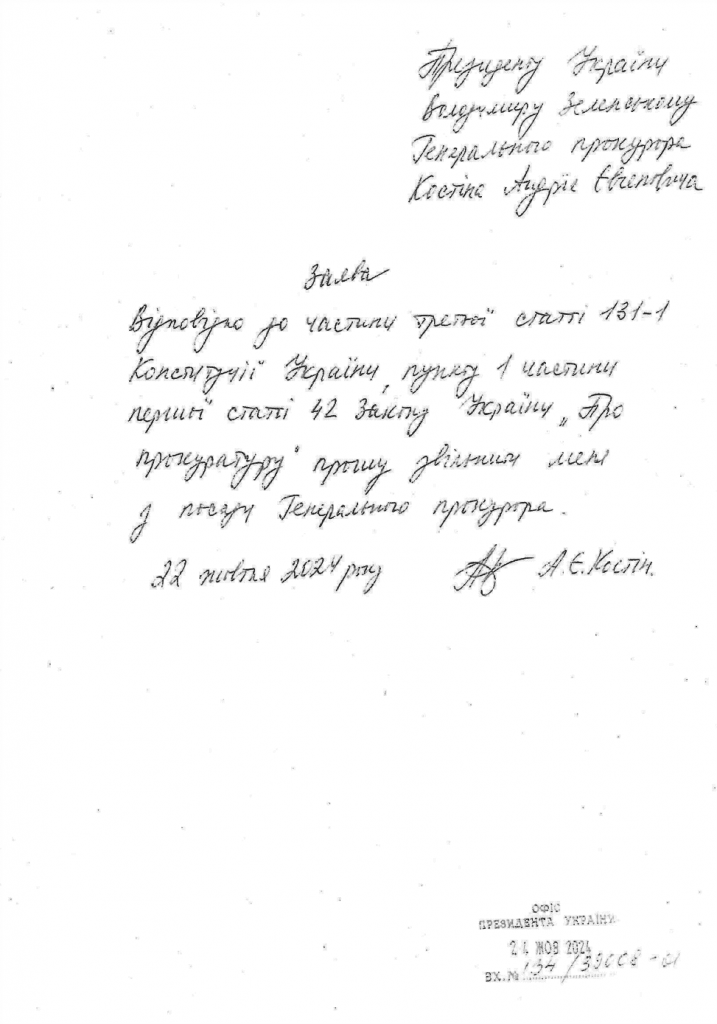 Президенту України
Володимиру Зеленському
Генерального прокурора
Костіна Андрія Євгеновича
Заява
Відповідно до частини третьої статті 131-1
Конституції України, пункту 1 частини
першої статті 42 Закону України „Про
прокуратуру" прошу звільнити мене
з посади Генерального прокурора.
22 жовтня 2024 року А.Є.Костін.
ОФІС
ПРЕЗИДЕНТА УКРАЇНИ
24 ЖОВ 2024
ВХ.№